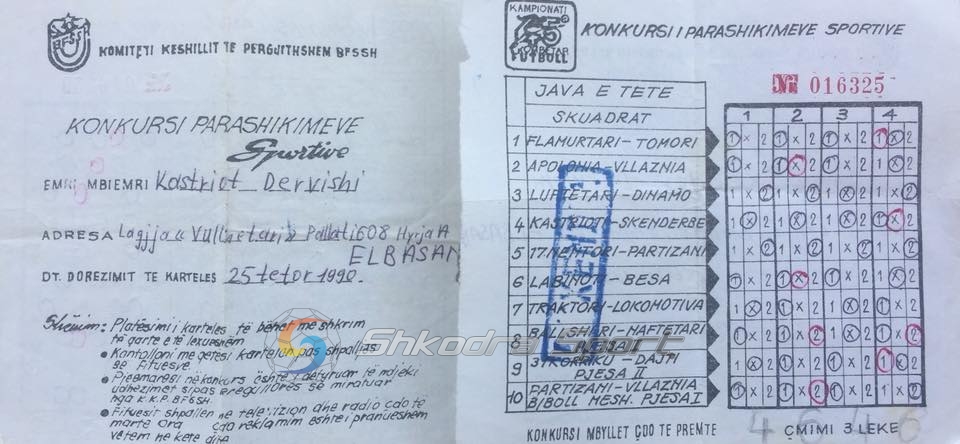 BFSSH
KOMITETI KESHILLIT TE PERGJITHSHEM BFSSH
KONKURSI PARASHIKIMEVE
Sportive
EMRI MBIEMRI Kastriot Dervishi
ADRESA Lagjja "Vullnetari" Pallati 608 Hyrja A
ELBASAN
DT. DOREZIMIT TE KARTELES 25 tetor 1990.
Shënim: Plotësimi i karteles të bëhet me shkrim
të qartë e të lexueshëm
• Kontolloni me qetesi kartelen pas shpalljes
së fituesve.
• Pjesmaresi në konkurs është i detyruar të ndjeki
udhëzimet sipas rregullores së miratuar
nga K.K.P. BFSSH.
• Fituesit shpallen ne televizion dhe radio çdo të
marte ora çdo reklamim eshte i pranueshem
vetem ne kete ditë
KAMPIONATI
SHQIPTAR
FUTBOLL
KONKURSI I PARASHIKIMEVE SPORTIVE
Nr 016325
JAVA E TETE
SKUADRAT
1 2 3 4
1 FLAMURTARI-TOMORI 1 x 2 1 x 2 1 x 2 1 x 2
2 APOLONIA-VLLAZNIA 1 x 2 1 x 2 1 x 2 1 x 2
3 LUFTETARI-DINAMO 1 x 2 1 x 2 1 x 2 1 x 2
4 KASTRIOTI-SKENDERBE 1 x 2 1 x 2 1 x 2 1 x 2
5 17 NENTORI-PARTIZANI 1 x 2 1 x 2 1 x 2 1 x 2
6 LABINOTI-BESA 1 x 2 1 x 2 1 x 2 1 x 2
7 TRAKTORI-LOKOMOTIVA 1 x 2 1 x 2 1 x 2 1 x 2
8 BALLSHARI-NAFTETARI
PJESA II 1 x 2 1 x 2 1 x 2 1 x 2
9 31 KORRIKU-DAJTI
PJESA II 1 x 2 1 x 2 1 x 2 1 x 2
10 PARTIZANI-VLLAZNIA
B/BOLL MESH. PJESA I 1 x 2 1 x 2 1 x 2 1 x 2
4 6 4 6
KONKURSI MBYLLET ÇDO TE PREMTE
CMIMI 3 LEKE